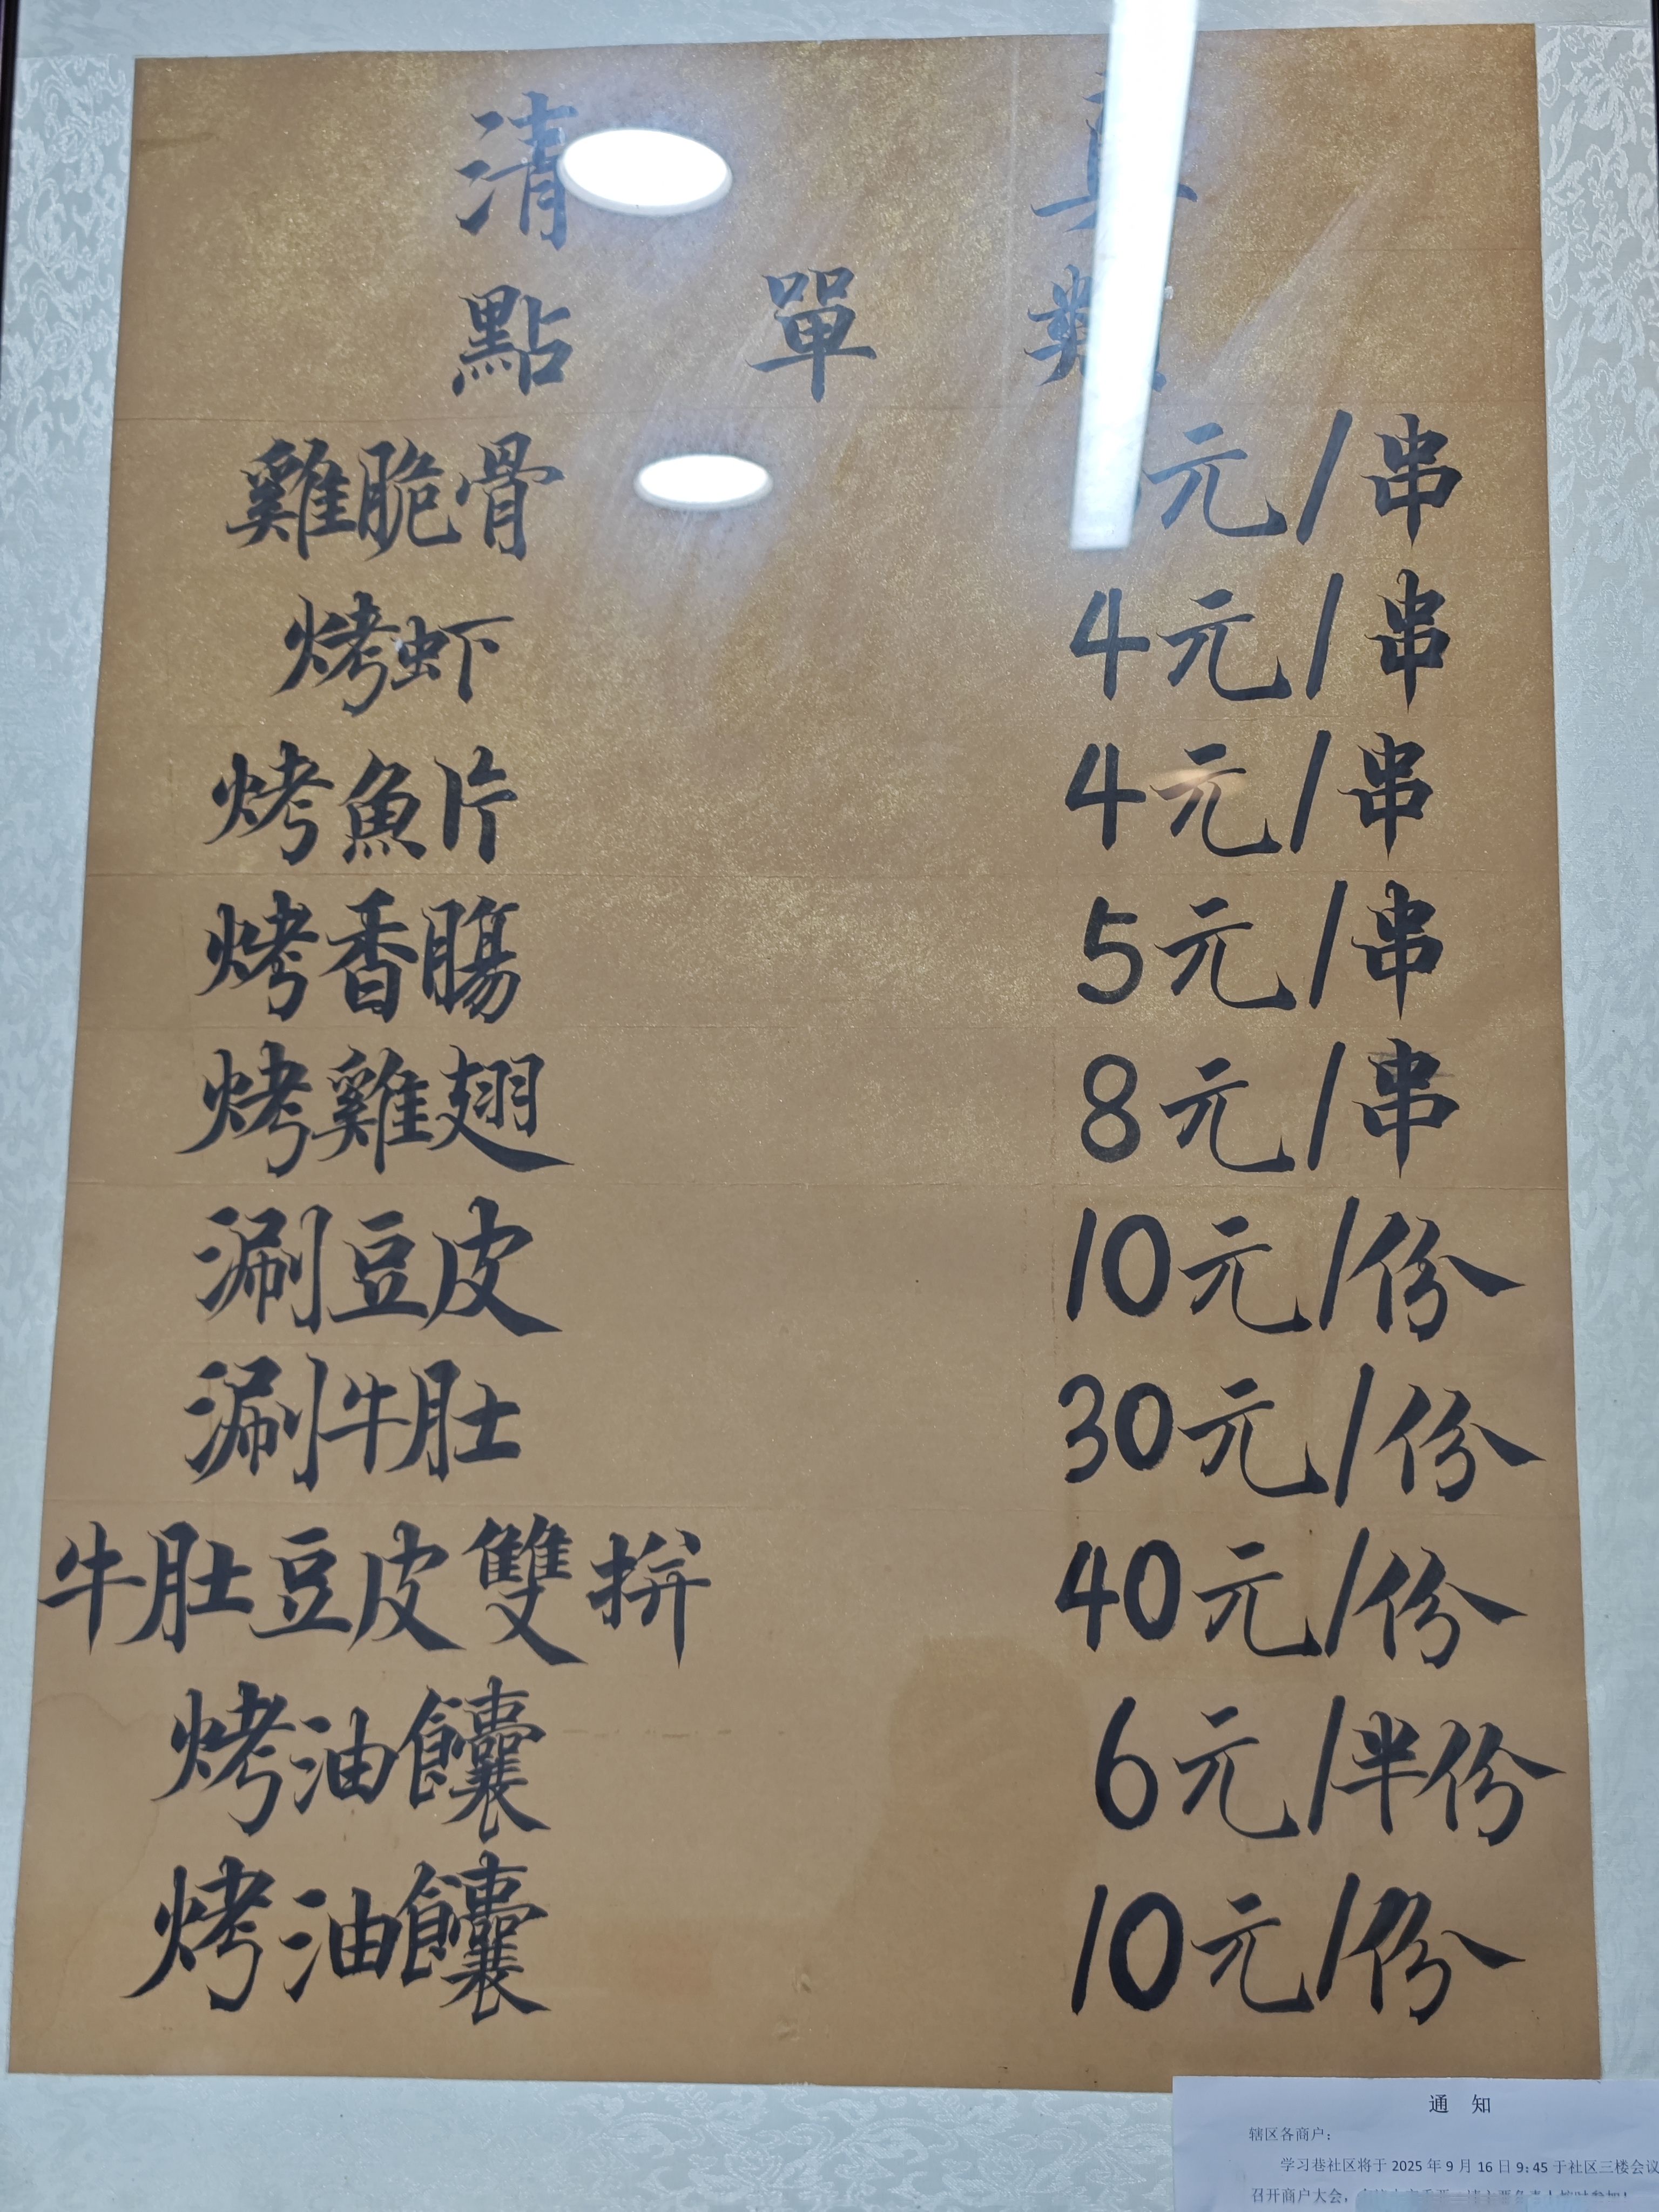 清 真
點 單 類
雞脆骨 元/串
烤虾 4元/串
烤魚片 4元/串
烤香腸 5元/串
烤雞翅 8元/串
涮豆皮 10元/份
涮牛肚 30元/份
牛肚豆皮雙拼 40元/份
烤油饢 6元/半份
烤油饢 10元/份
通 知
辖区各商户：
学习巷社区将于 2025 年 9 月 16 日 9:45 于社区三楼会议
召开商户大会，